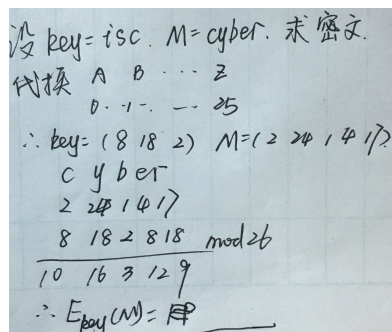 设 key=isc. M=cyber. 求密文.
代换 A B ... Z
0. 1. ... 25
∴ key=(8 18 2) M=(2 24 1 4 17)
c y b e r
2 24 1 4 17
8 18 2 8 18 mod 26
10 16 3 12 9
∴ Ekey(M)=